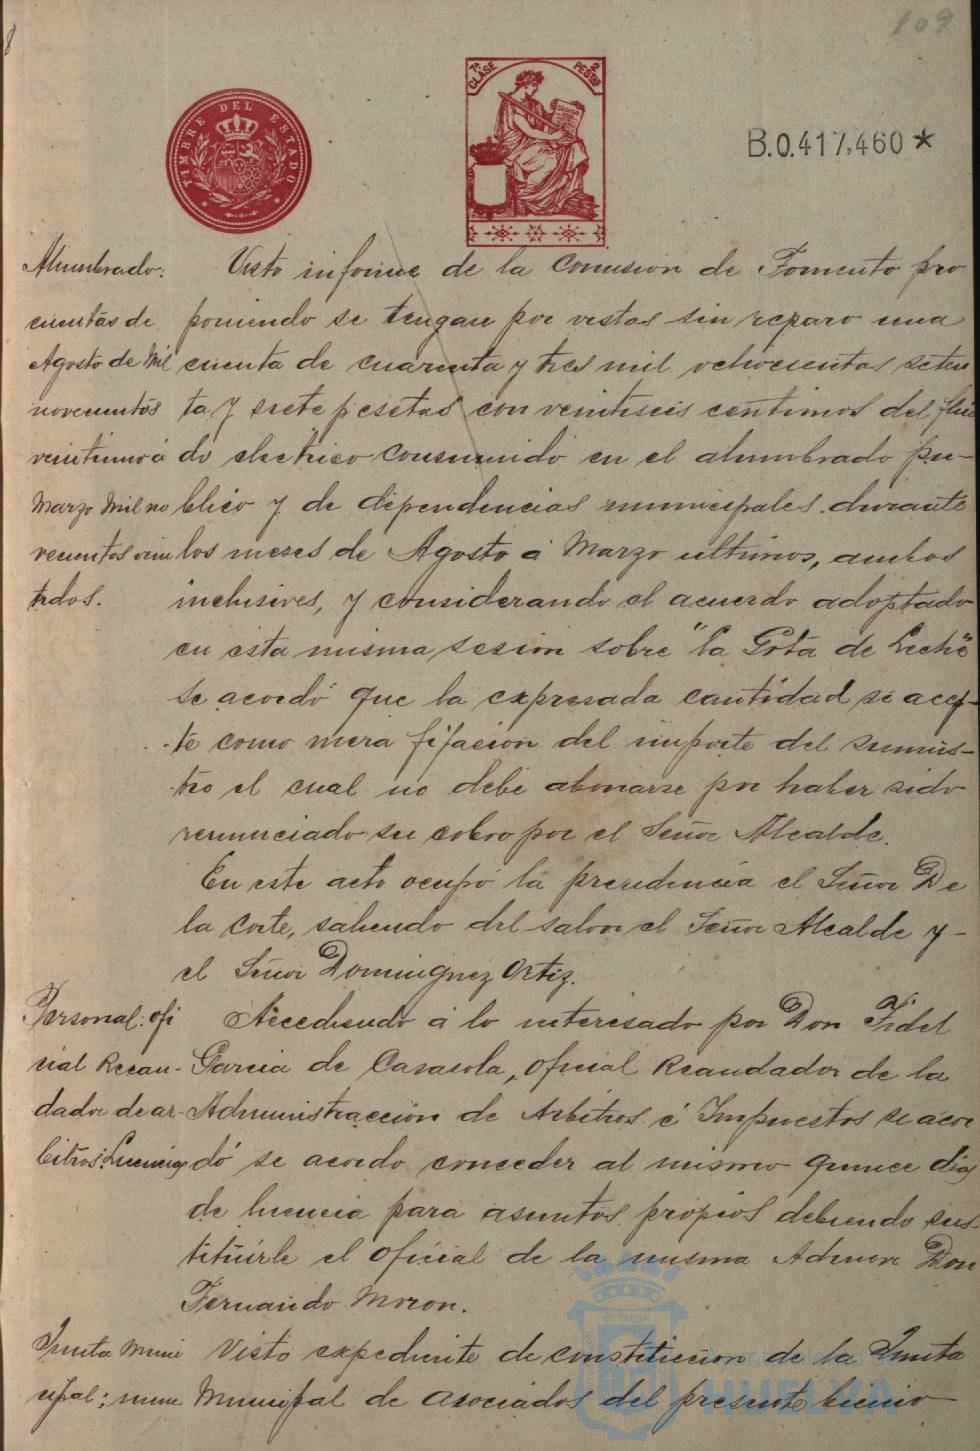 109
8
TIMBRE DEL ESTADO
7ª CLASE
2 PESETAS
B.0.417,460 *
Alumbrado:
cuentas de
Agosto de mil
novecientos
veintiuno á
Marzo mil no
vecientos vein
tidos.
Visto informe de la Comision de Fomento pro
poniendo se tengan por vistas sin reparo una
cuenta de cuarenta y tres mil ochocientas seten
ta y siete pesetas con veintiseis centimos del flui
do electrico consumido en el alumbrado pu-
blico y de dependencias municipales durante
los meses de Agosto á Marzo ultimos, ambos
inclusives, y considerando el acuerdo adoptado
en esta misma sesion sobre "la Gota de Leche"
se acordó que la expresada cantidad se acep-
te como mera fijacion del importe del sumis-
tro el cual no debe abonarse por haber sido
renunciado su cobro por el Señor Alcalde.
En este acto ocupó la presidencia el Señor De
la Corte, saliendo del salon el Señor Alcalde y -
el Señor Dominguez Ortiz.
Personal: ofi
cial Recau-
dador de ar-
bitros: Licencia
Accediendo á lo interesado por Don Fidel
Garcia de Casasola, oficial Recaudador de la
Administraccion de Arbitros é Impuestos se acor
dó se acordo conceder al mismo quince dias
de licencia para asuntos propios debiendo sus-
tituirle el oficial de la misma Admon Don
Fernando Moron.
Junta Muni
cipal;
Visto expediente de constitucion de la Junta
Municipal de asociados del presente bienio
HUELVA